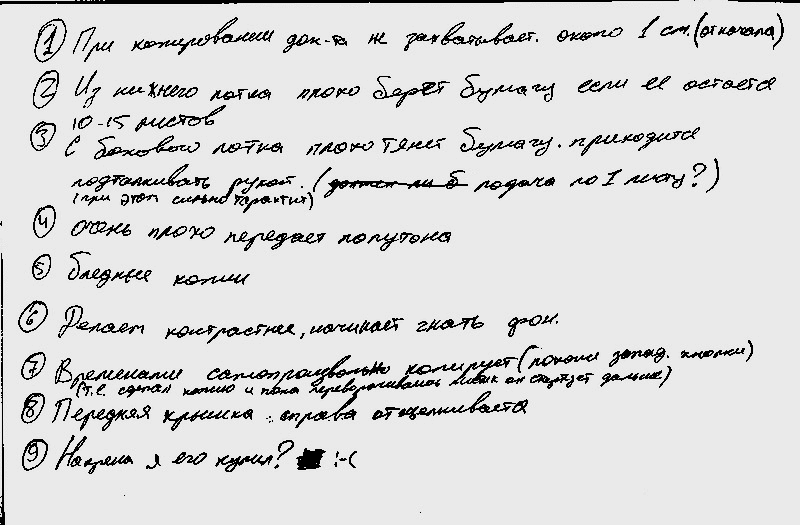 1 При копировании док-та не захватывает. около 1 см. (от начала)
2 Из нижнего лотка плохо берёт бумагу если её остается
10-15 листов
3 С бокового лотка плохо тянет бумагу. приходится
подталкивать рукой. (должен ли б подача по 1 листу?)
(при этом сильно тарахтит)
4 Очень плохо передает полутона
5 Бледные копии
6 Делаем контрастнее, начинает гнать фон.
7 Временами самопроизвольно копирует (похоже запад. кнопки)
(т.е. сделал копию и пока переворачиваешь он стартует дальше)
8 Передняя крышка справа отщелкивается
9 Нахрена я его купил? :-(